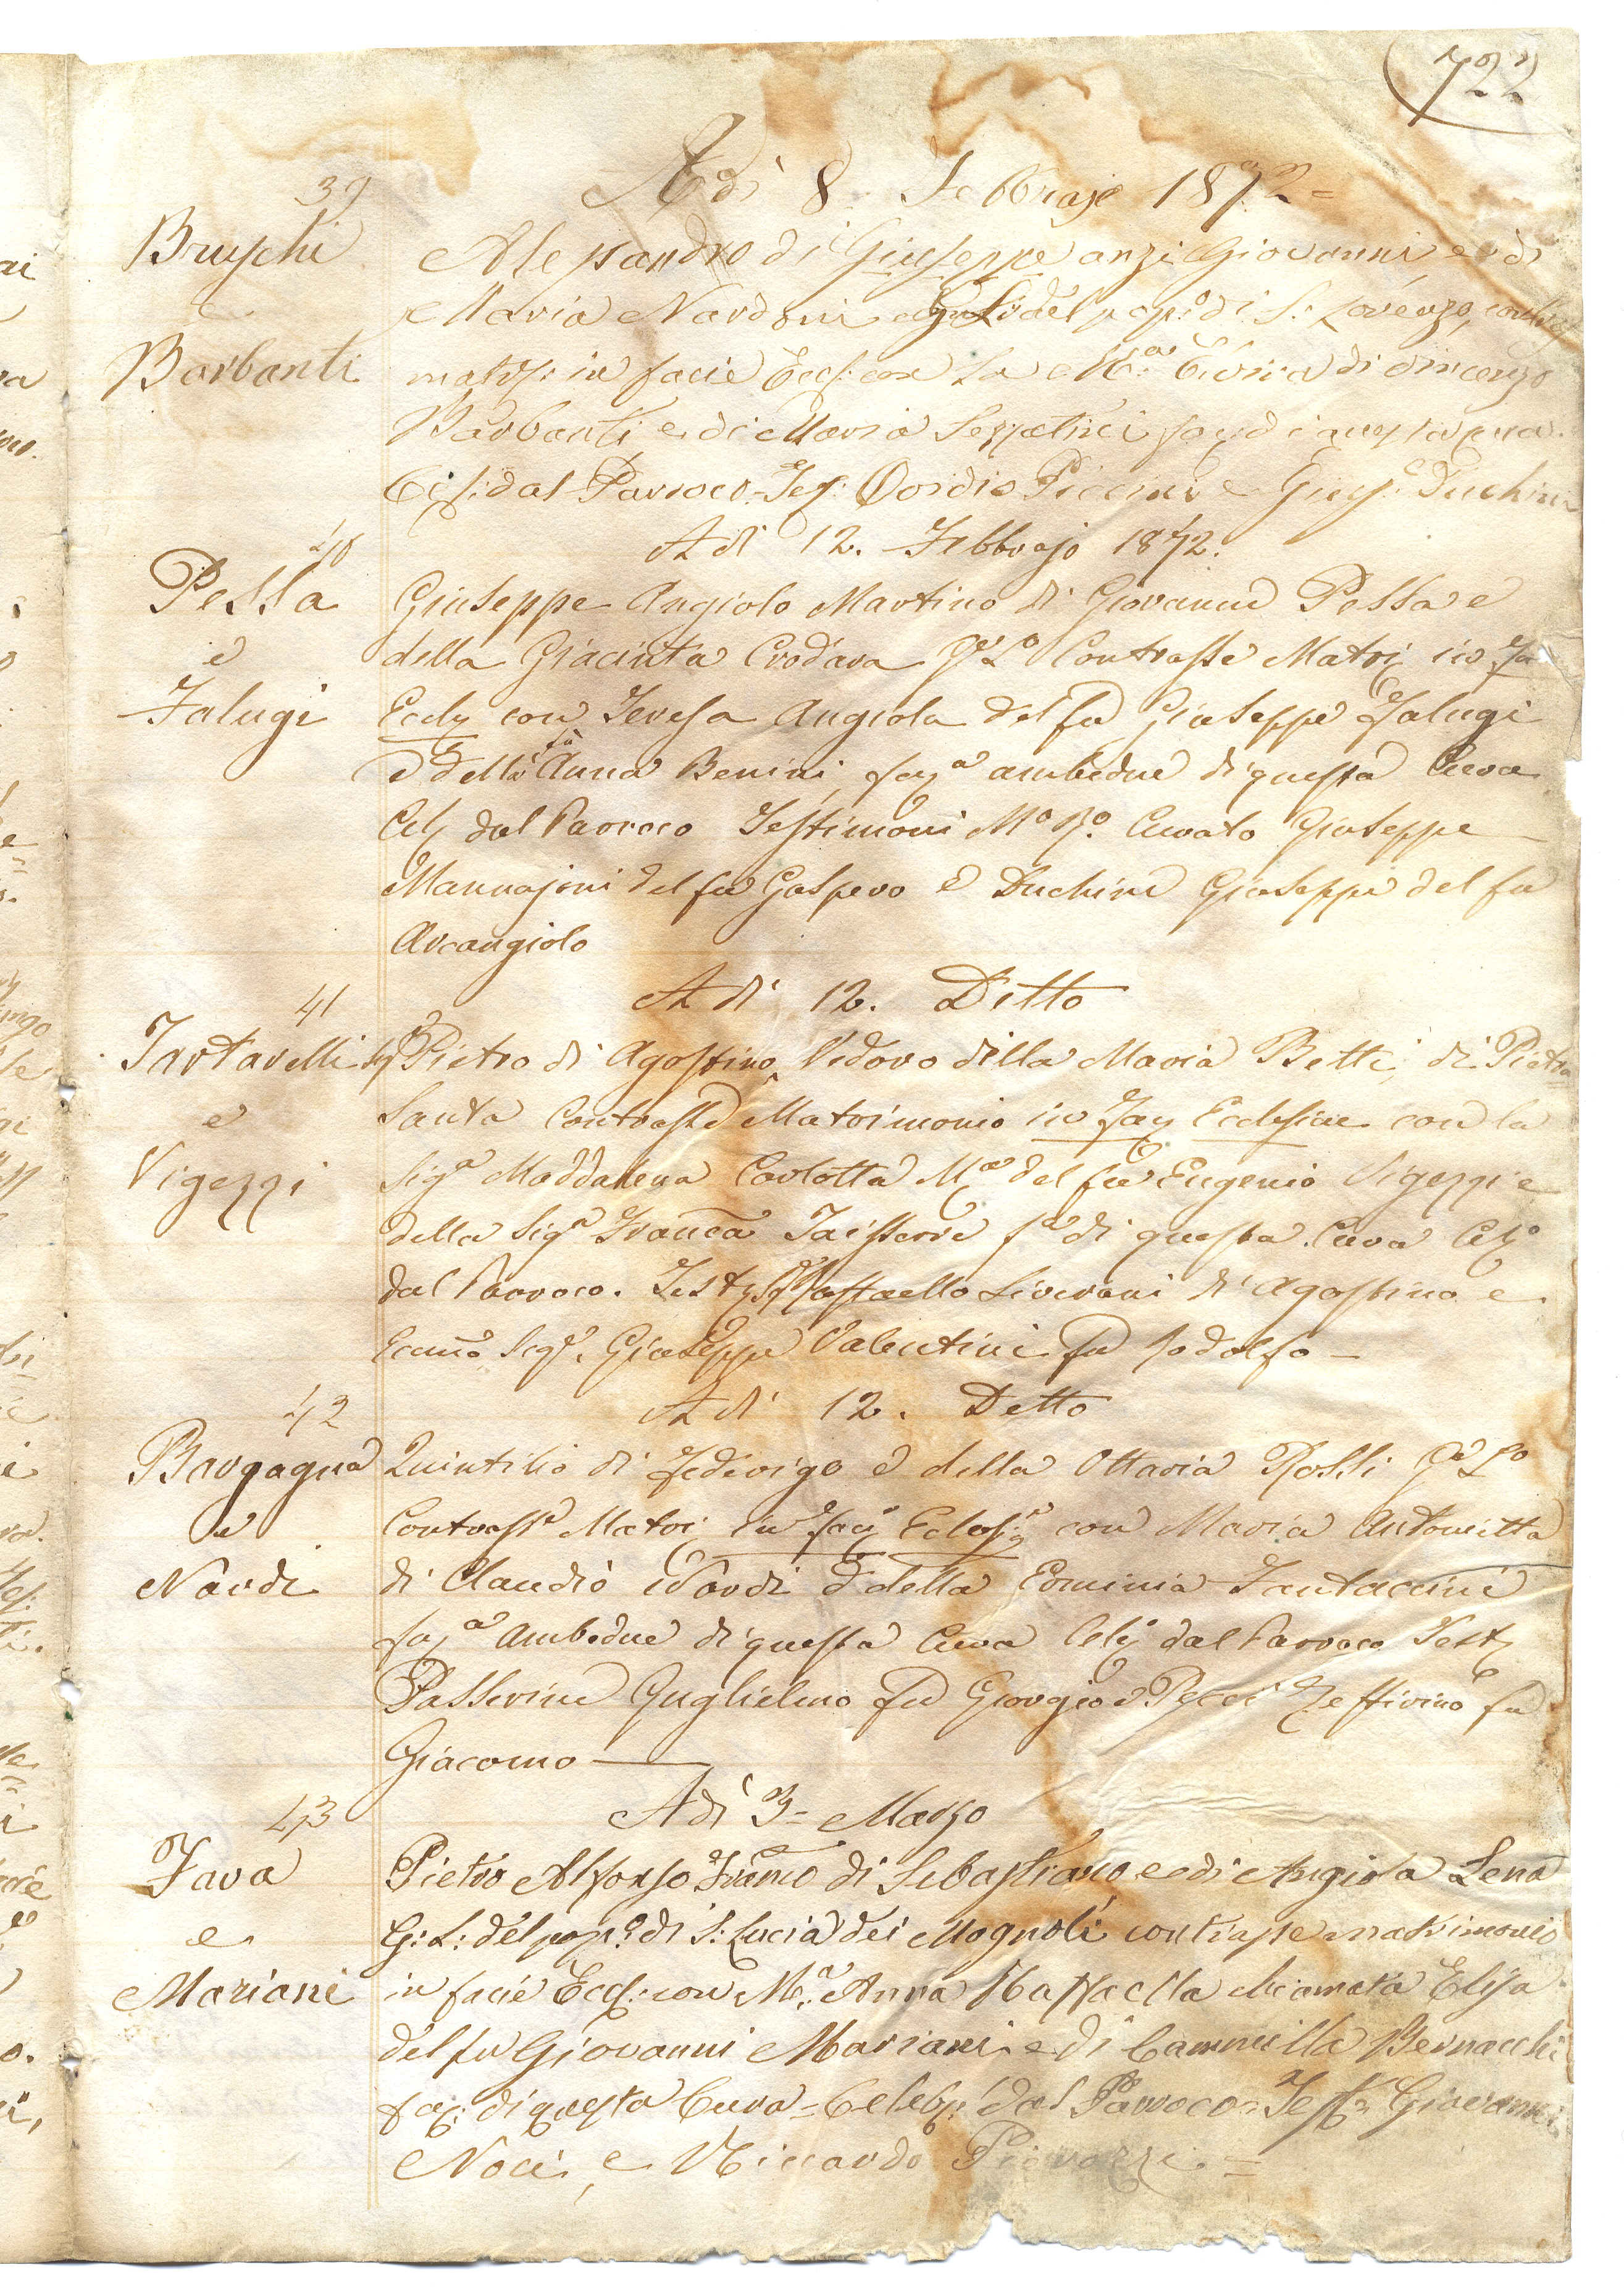 722
39
Adì 8. Febbrajo 1872=
Bruschi
e
Barbanti
Alessandro di Giuseppe anzi Giovanni, e di
Maria Nardoni del pop:o di S: Lorenzo,
matr: in facie Eccl: con la M:a Elvira di Vincenzo
Barbanti e di Maria di questa cura.
Cel: dal Parroco= Tes: Piccini e Gius: Duchini
40
A dì 12. Febbrajo 1872.
Pessa
e
Falugi
Giuseppe Angiolo Martino di Giovanni Pessa e
della Giacinta Crodara Ge Lo Contrasse Matri in Fa
Eccly con Teresa Angiola del fu Giuseppe Falugi
e della fù Anna Benini, faya ambedue di questa Cura
Cely dal Parroco Testimoni Mo Ro Curato Giuseppe
Mannajoni del fu Gaspero e Duchini Giuseppe del fu
Arcangiolo
41
A dì 12. Ditto
Tartarelli
e
Vigezzi
Pietro di Agostino Vedovo della Maria Betti, di Pietra
Santa Contrasse Matrimonio in Fay Ecclesiae con la
Siga Maddalena Carlotta Ma del fu Eugenio Vigezzi e
della Siga Franca fa di questa Cura Cely
dal Parroco. Testy Raffaello Liverani di Agostino e
Sigr. Giuseppe Valentini fu Rodolfo—
42
A dì 12. Detto
Bargagna
e
Nardi
Quintilio di Federigo e della Ottavia Rossi Ge Lo
Contrasse Matri in facy Eclesia con Maria Antonietta
di Claudio Nardi e della Erminia Fantaccini
faya Ambedue di questa Cura Cely dal Parroco Testy
Passerini Guglielmo fu Giorgio e Pecci Zeffirino fu
Giacomo—
43
Adì 3= Marzo
Fava
e
Mariani
Pietro Alfonso Franco di Sebastiano, e di Angiola Lena
G: L: del pop:o di S: Lucia dei Magnoli contrasse matrimonio
in facie Eccl: con M:a Anna Raffaella chiamata Elisa
del fu Giovanni Mariani e di Cammilla Bernacchi
fa: di questa Cura= Celeb: dal Parroco= Test: Giovanni
Noci, e Riccardo =